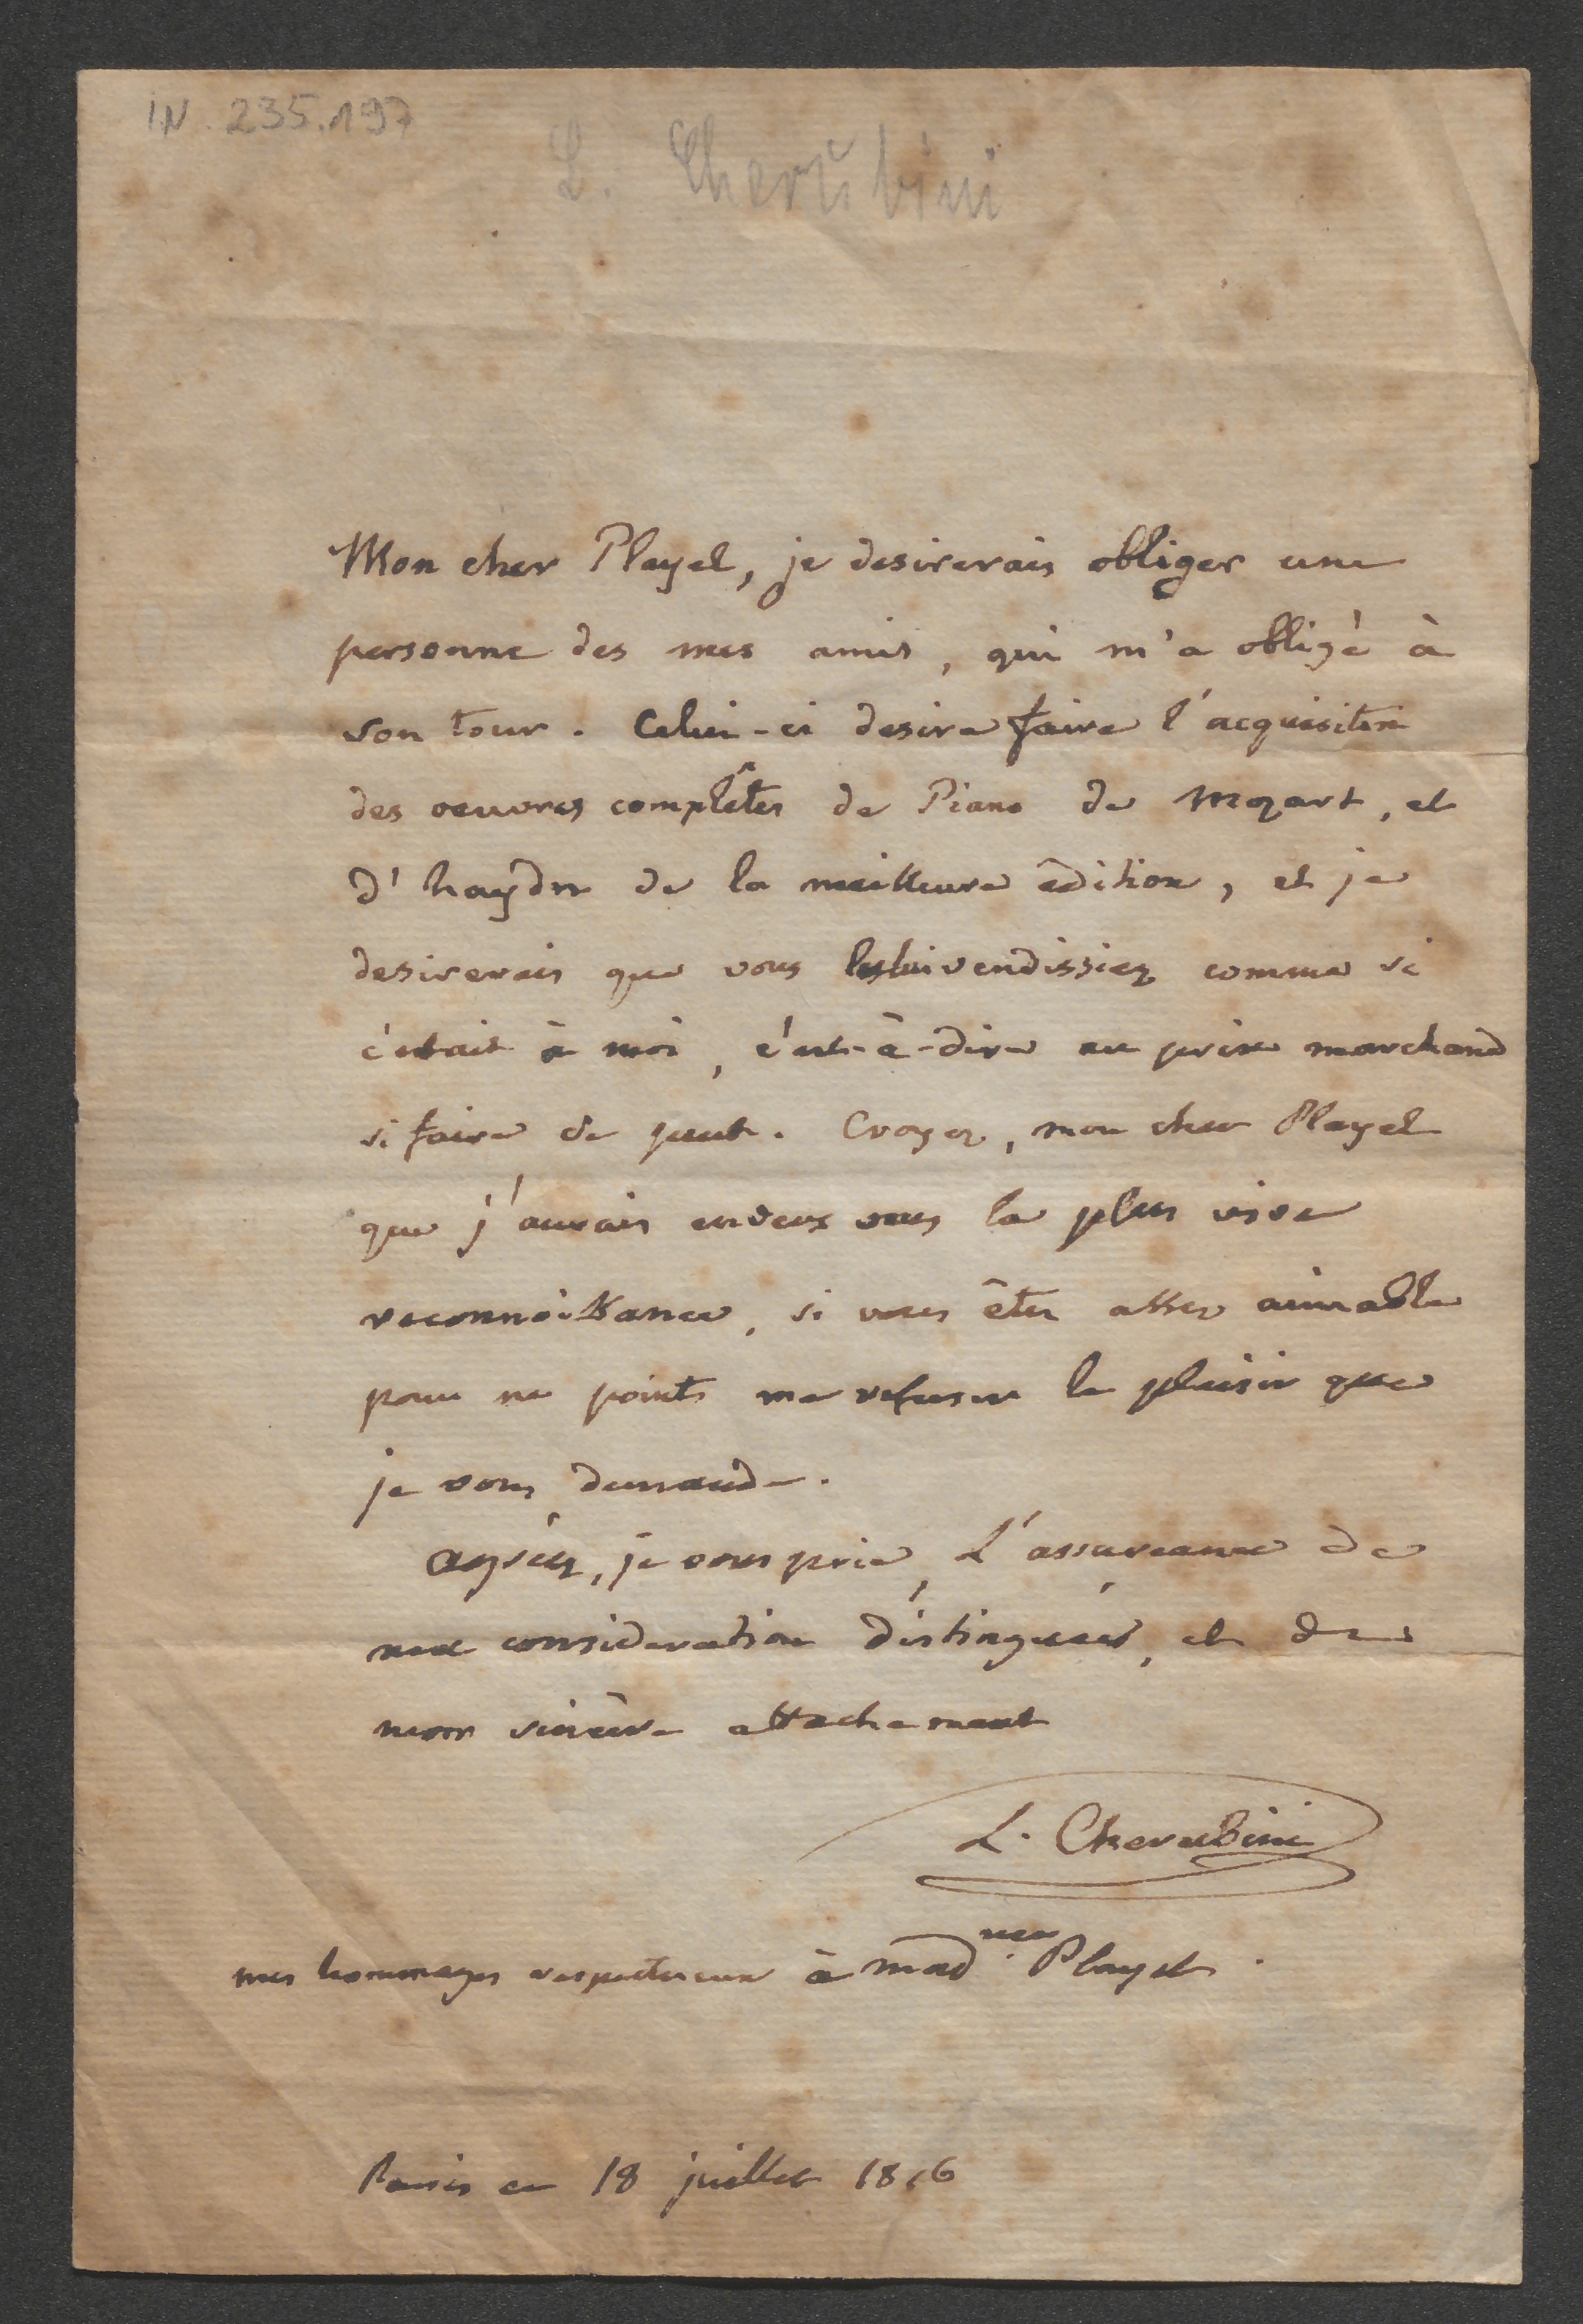 IN. 235.197
L. Cherubini
Mon cher Pleyel, je desirerais obliger une
personne des mes amis, qui m'a obligé à
son tour. Celui-ci desire faire l'acquisition
des oeuvres complêtes de Piano de Mozart, et
d'haydn de la meilleure édition, et je
desirerais que vous les lui vendissiez comme si
c'etait à moi, c'est-à-dire au prix marchand
si faire se peut. Croyez, mon cher Pleyel
que j'aurais envers vous la plus vive
reconnoissance, si vous êtes assez aimable
pour ne point me refuser le plaisir que
je vous demande.
agréez, je vous prie, L'assurance de
ma consideration distinguée, et de
mon sincère attachement
L. Cherubini
mes hommages respectueux à mad.me Pleyel.
Paris ce 18 juillet 1816